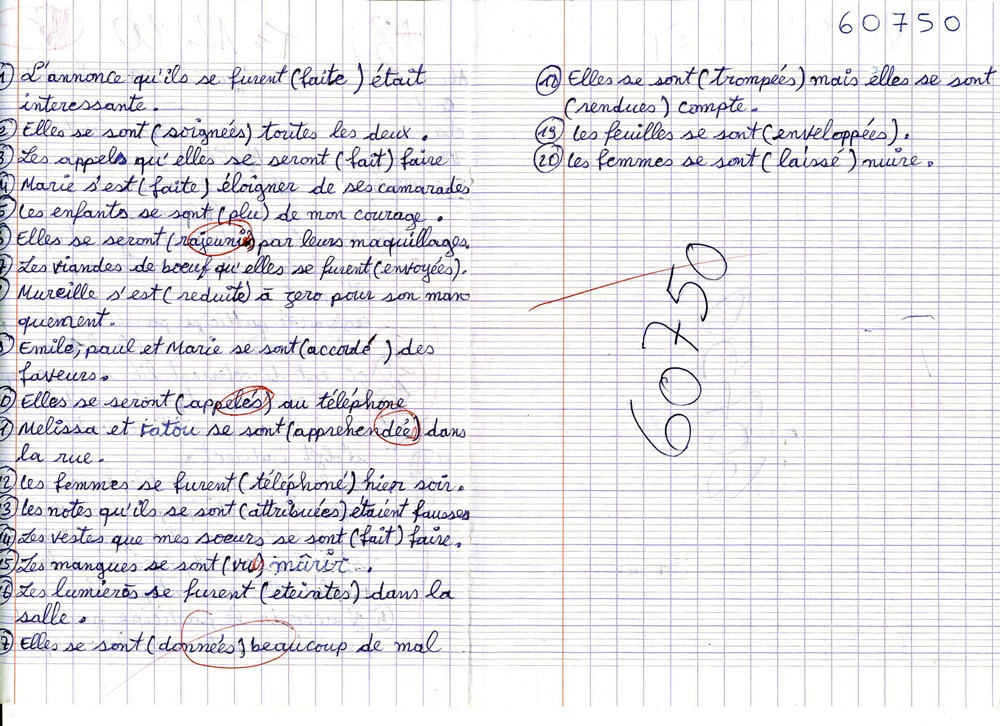 60750
1) L'annonce qu'ils se furent (faite) était
interessante.
2) Elles se sont (soignées) toutes les deux.
3) Les appels qu'elles se seront (fait) faire
4) Marie s'est (faite) éloigner de ses camarades
5) Les enfants se sont (plu) de mon courage.
6) Elles se seront (rajeuni) par leurs maquillages.
7) Les viandes de bœuf qu'elles se furent (envoyées).
Mureille s'est (reduite) à zero pour son man
quement.
9) Emile, paul et Marie se sont (accordé) des
faveurs.
0) Elles se seront (appelés) au téléphone
1) Melissa et Fatou se sont (apprehendées) dans
la rue.
12) Les femmes se furent (téléphoné) hier soir.
13) Les notes qu'ils se sont (attribuées) étaient fausses
14) Les vestes que mes soeurs se sont (fait) faire.
15) Les mangues se sont (vu) mûrir.
16) Les lumières se furent (eteintes) dans la
salle.
17) Elles se sont (données) beaucoup de mal
18) Elles se sont (trompées) mais elles se sont
(rendues) compte.
19) Les feuilles se sont (enveloppées).
20) Les femmes se sont (laissé) nuire.
60750